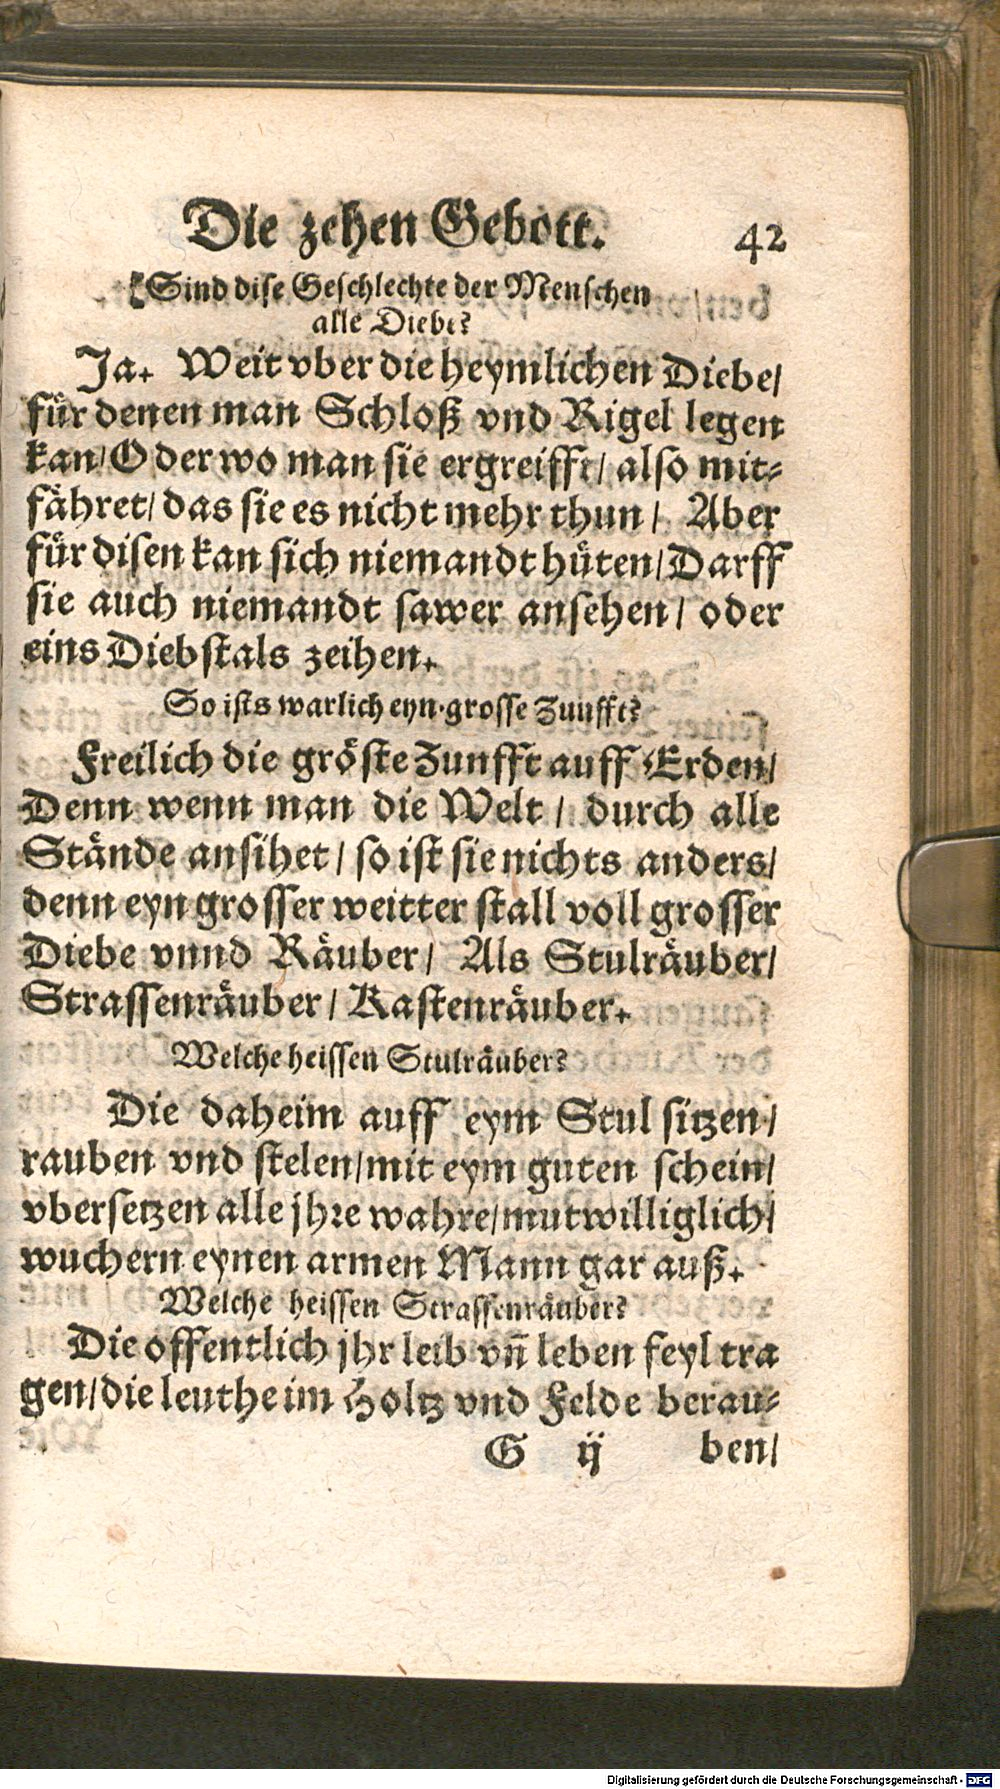 Die zehen Gebott. 42
Sind dise Geschlechte der Menschen
alle Diebe?
Ja. Weit vber die heymlichen Diebe/
für denen man Schloß vnd Rigel legen
kan/ Oder wo man sie ergreifft/ also mit⸗
fähret/ das sie es nicht mehr thun/ Aber
für disen kan sich niemandt hüten/ Darff
sie auch niemandt sawer ansehen/ oder
eins Diebstals zeihen.
So ists warlich eyn grosse Zunfft?
Freilich die gröste Zunfft auff Erden/
Denn wenn man die Welt/ durch alle
Stände ansihet/ so ist sie nichts anders/
denn eyn grosser weitter stall voll grosser
Diebe vnnd Räuber/ Als Stulräuber/
Strassenräuber/ Kastenräuber.
Welche heissen Stulräuber?
Die daheim auff eym Stul sitzen/
rauben vnd stelen/ mit eym guten schein/
vbersetzen alle jhre wahre/ mutwilliglich/
wuchern eynen armen Mann gar auß.
Welche heissen Strassenräuber?
Die offentlich jhr leib vñ leben feyl tra
gen/ die leuthe im Holtz vnd Felde berau⸗
G ij ben/
Digitalisierung gefördert durch die Deutsche Forschungsgemeinschaft - DFG